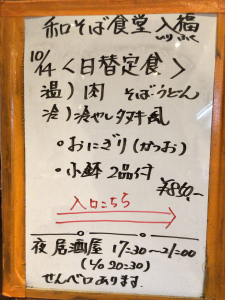 和そば食堂 入福
いりふく
10/14 <日替定食>
温) 肉 そば・うどん
冷) 冷やしタヌキ風
・おにぎり(かつお)
・小鉢 2品付
¥860.-
入口こちら
夜 居酒屋 17:30~21:00
(L/O 20:30)
せんベロあります